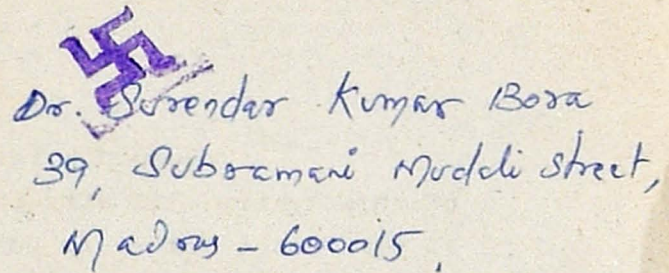 Dr. Surendar Kumar Bora
39, Subramani Mudali Street,
Madras - 600015.